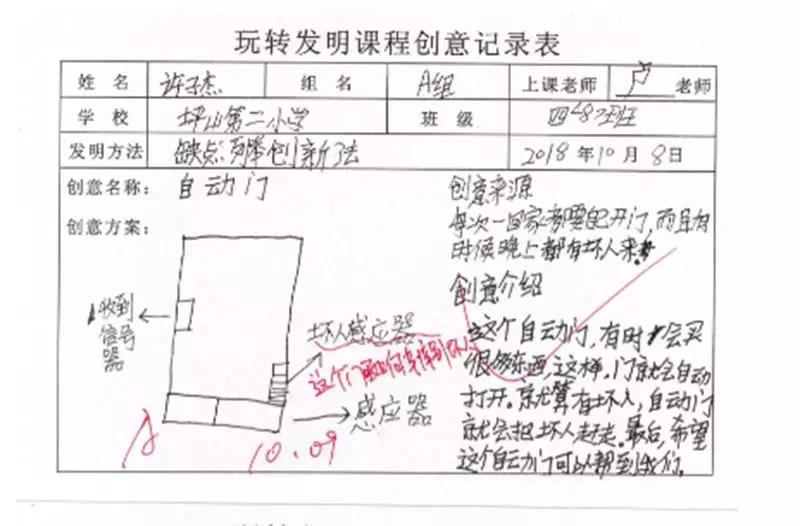 玩转发明课程创意记录表
姓名 许子杰 组名 A组 上课老师 卢老师
学校 坪山第二小学 班级 四(8)班
发明方法 缺点列举创新法 2018年10月8日
创意名称: 自动门
创意方案:
收到
信号
器
坏人感应器
这个门如何
感应器
A
10.09
创意来源
每次一回家都要自己开门,而且有
时候晚上都有坏人来。
创意介绍
这个自动门,有时会买
很多东西,这样,门就会自动
打开。就算有坏人,自动门
就会把坏人赶走。最后,希望
这个自动门可以帮到我们。